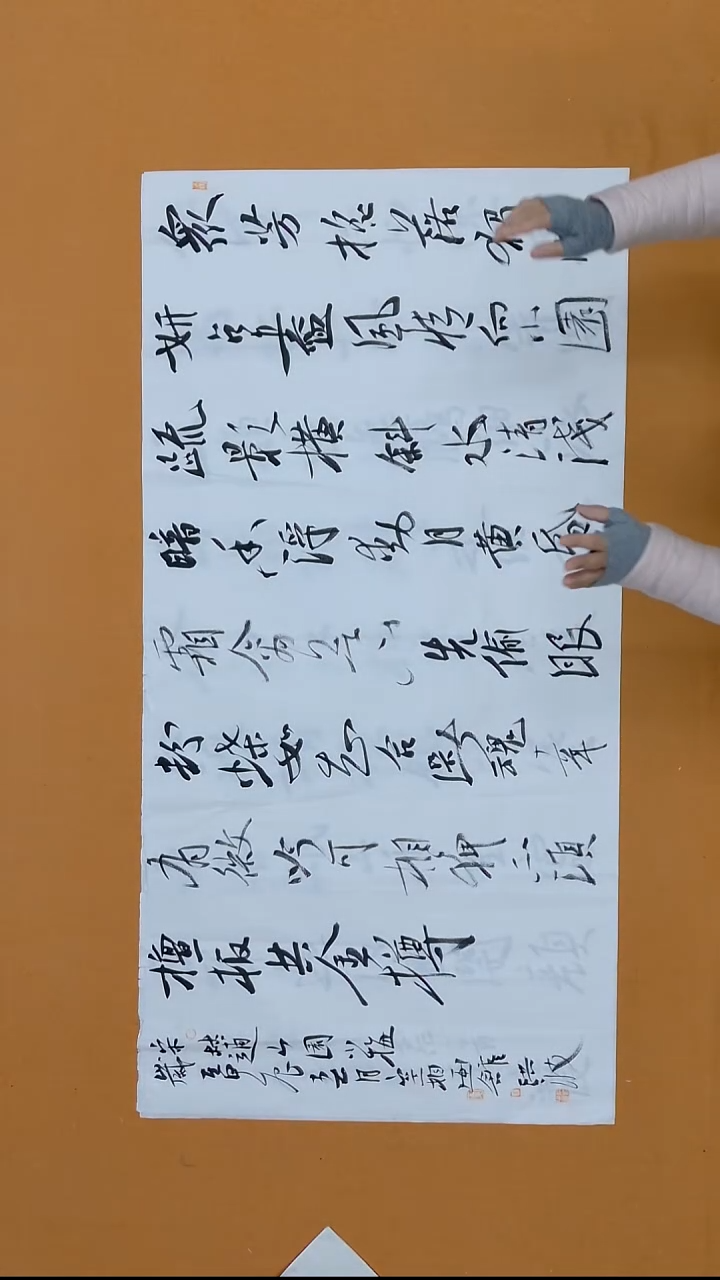 眾芳搖落獨
妍占盡風情向小園
疏影橫斜水清淺
暗香浮動月黃昏
霜禽欲下先偷眼
粉蝶如知合斷魂幸
有微吟可相狎不須
檀板共金樽
宋林逋山園小梅
歲甲辰五月洪波